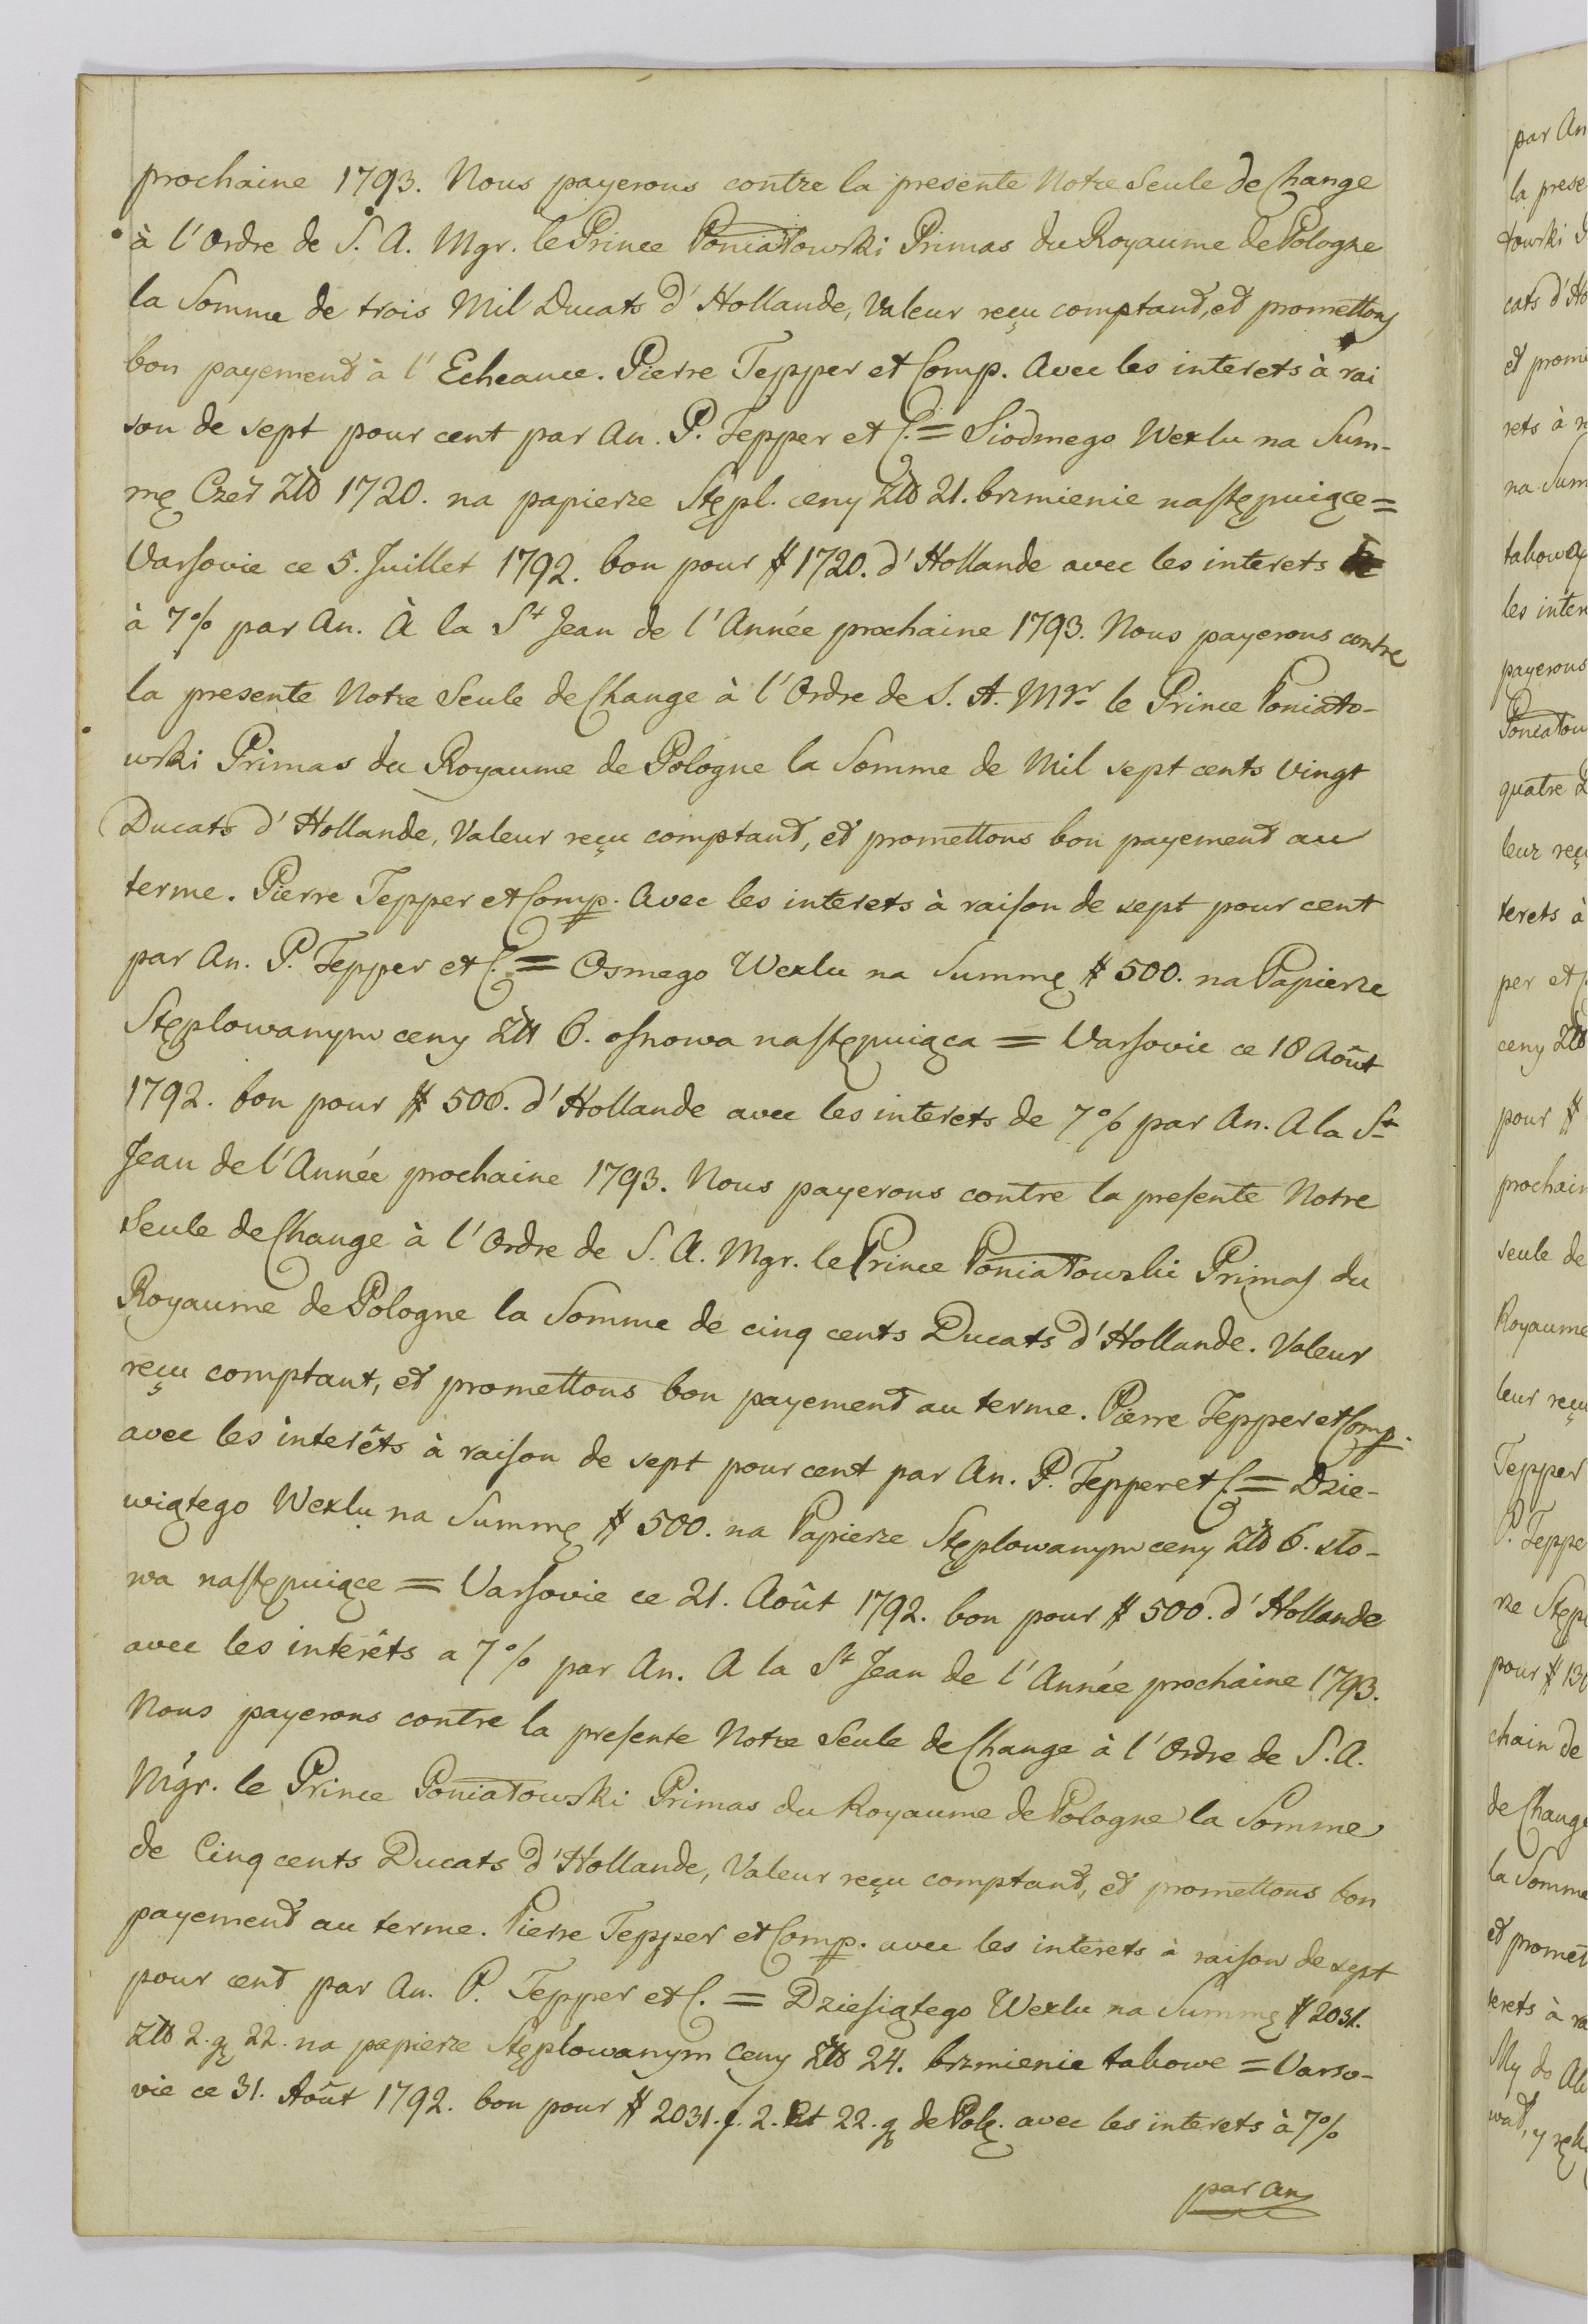 prochaine 1793. Nous payerons contre la presente Notre Seule de Change
à l'Ordre de S. A. Mgr. le Prince Poniatowski Primas du Royaume de Pologne
la Somme de trois Mil Ducats d'Hollande, Valeur reçu comptand, et promettons
bon payement à l'Echeance. Pierre Tepper et Comp. Avec les interets à rai
son de sept pour cent par An. P. Tepper et C. = Siodmego Wexlu na Sum-
mę Czer Złł 1720. na papierze Stępl. ceny Złł 21. brzmienie następuiące =
Varsovie ce 5. Juillet 1792. bon pour # 1720. d'Hollande avec les interets
à 7% par An. À la St Jean de l'Année prochaine 1793. Nous payerons contre
la presente Notre Seule de Change à l'Ordre de S. A. Mgr le Prince Poniato-
wski Primas du Royaume de Pologne la Somme de Mil sept cents Vingt
Ducats d'Hollande, Valeur reçu comptand, et promettons bon payement au
terme. Pierre Tepper et Comp. Avec les interets à raison de sept pour cent
par An. P. Tepper et C. = Osmego Wexlu na Summę # 500. na Papierze
Stęplowanym ceny Złł 6. osnowa następuiąca = Varsovie ce 18 Août
1792. bon pour # 500. d'Hollande avec les interets de 7% par An. A la St
Jean de l'Année prochaine 1793. Nous payerons contre la presente Notre
Seule de Change à l'Ordre de S. A. Mgr. le Prince Poniatowski Primas du
Royaume de Pologne la Somme de cinq cents Ducats d'Hollande. Valeur
reçu comptant, et promettons bon payement au terme. Pierre Tepper et Comp.
avec les interêts à raison de sept pour cent par An. P. Tepper et C. = Dzie-
wiątego Wexlu na Summę # 500. na Papierze Stęplowanym ceny Złł 6. sło-
wa następuiące = Varsovie ce 21. Août 1792. bon pour # 500. d'Hollande
avec les interêts a 7% par An. A la St Jean de l'Année prochaine 1793.
Nous payerons contre la presente Notre Seule de Change à l'Ordre de S. A.
Mgr. le Prince Poniatowski Primas du Royaume de Pologne la Somme
de Cinq cents Ducats d'Hollande, Valeur reçu comptand, et promettons bon
payement au terme. Pierre Tepper et Comp. avec les interets à raison de sept
pour cent par An. P. Tepper et C. = Dziesiątego Wexlu na Summę # 2031.
Złł 2. gę 22. na papierze Stęplowanym Ceny Złł 24. brzmienie takowe = Varso-
vie ce 31. Août 1792. bon pour # 2031. f. 2. Et 22. g de Polg. avec les interets à 7%
par an
par An
la prese
towski
cats d'Ho
et prome
rets à
na Sum
takowa
les inter
payerons
Poniatow
quatre
leur reçu
terets à
per et
ceny Złł
pour #
prochain
seule de
Royaume
leur reçu
Tepper
P. Teppe
rze Stępl
pour # 130
chain de
de Change
la Somme
et promet
terets à ra
My do